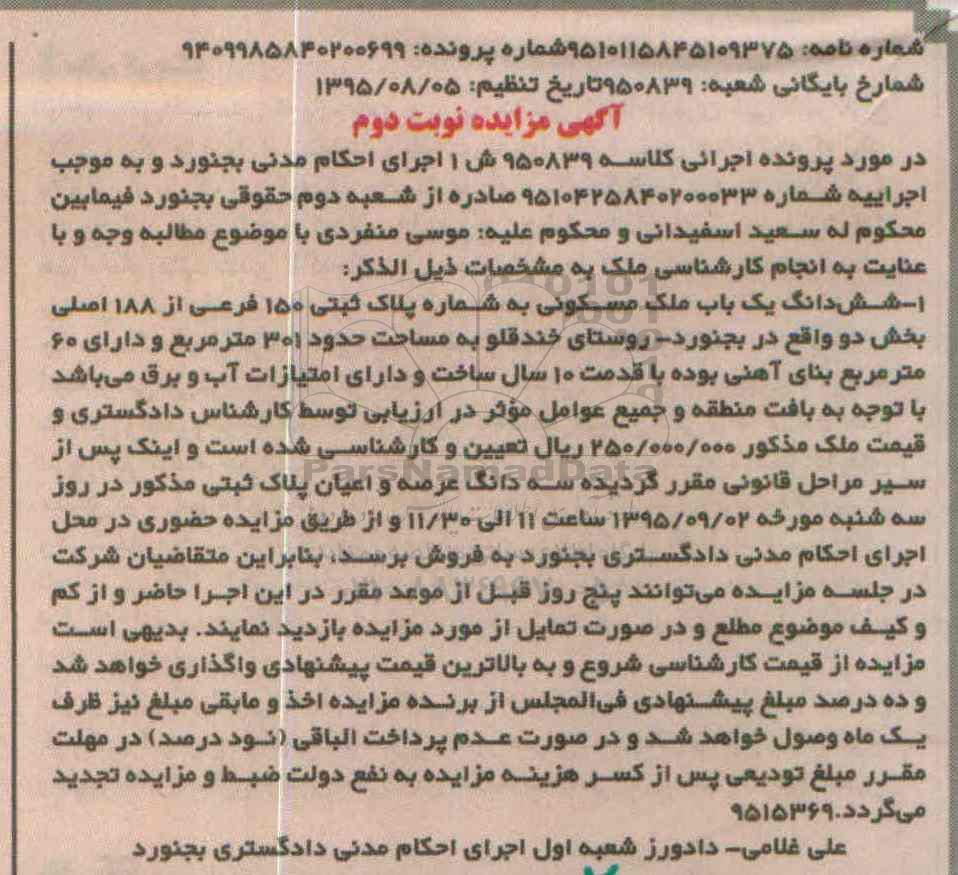 شماره نامه: ۹۵۱۰۱۱۵۸۴۵۱۰۹۳۷۵شماره پرونده: ۹۴۰۹۹۸۵۸۴۰۲۰۰۶۹۹
شمارخ بایگانی شعبه: ۹۵۰۸۳۹تاریخ تنظیم: ۱۳۹۵/۰۸/۰۵
آگهی مزایده نوبت دوم
در مورد پرونده اجرائی کلاسه ۹۵۰۸۳۹ ش ۱ اجرای احکام مدنی بجنورد و به موجب
اجراییه شماره ۹۵۱۰۴۲۵۸۴۰۲۰۰۰۳۳ صادره از شعبه دوم حقوقی بجنورد فیمابین
محکوم له سعید اسفیدانی و محکوم علیه: موسی منفردی با موضوع مطالبه وجه و با
عنایت به انجام کارشناسی ملک به مشخصات ذیل الذکر:
۱-شش‌دانگ یک باب ملک مسکونی به شماره پلاک ثبتی ۱۵۰ فرعی از ۱۸۸ اصلی
بخش دو واقع در بجنورد- روستای خندقلو به مساحت حدود ۳۰۱ مترمربع و دارای ۶۰
مترمربع بنای آهنی بوده با قدمت ۱۰ سال ساخت و دارای امتیازات آب و برق می‌باشد
با توجه به بافت منطقه و جمیع عوامل مؤثر در ارزیابی توسط کارشناس دادگستری و
قیمت ملک مذکور ۲۵۰/۰۰۰/۰۰۰ ریال تعیین و کارشناسی شده است و اینک پس از
ParsNamadData
سیر مراحل قانونی مقرر گردیده سه دانگ عرصه و اعیان پلاک ثبتی مذکور در روز
سه شنبه مورخه ۱۳۹۵/۰۹/۰۲ ساعت ۱۱ الی ۱۱/۳۰ و از طریق مزایده حضوری در محل
اجرای احکام مدنی دادگستری بجنورد به فروش برسد، بنابراین متقاضیان شرکت
در جلسه مزایده می‌توانند پنج روز قبل از موعد مقرر در این اجرا حاضر و از کم
و کیف موضوع مطلع و در صورت تمایل از مورد مزایده بازدید نمایند. بدیهی است
مزایده از قیمت کارشناسی شروع و به بالاترین قیمت پیشنهادی واگذاری خواهد شد
و ده درصد مبلغ پیشنهادی فی‌المجلس از برنده مزایده اخذ و مابقی مبلغ نیز ظرف
یک ماه وصول خواهد شد و در صورت عدم پرداخت الباقی (نود درصد) در مهلت
مقرر مبلغ تودیعی پس از کسر هزینه مزایده به نفع دولت ضبط و مزایده تجدید
می‌گردد.۹۵۱۵۳۶۹
علی غلامی- دادورز شعبه اول اجرای احکام مدنی دادگستری بجنورد